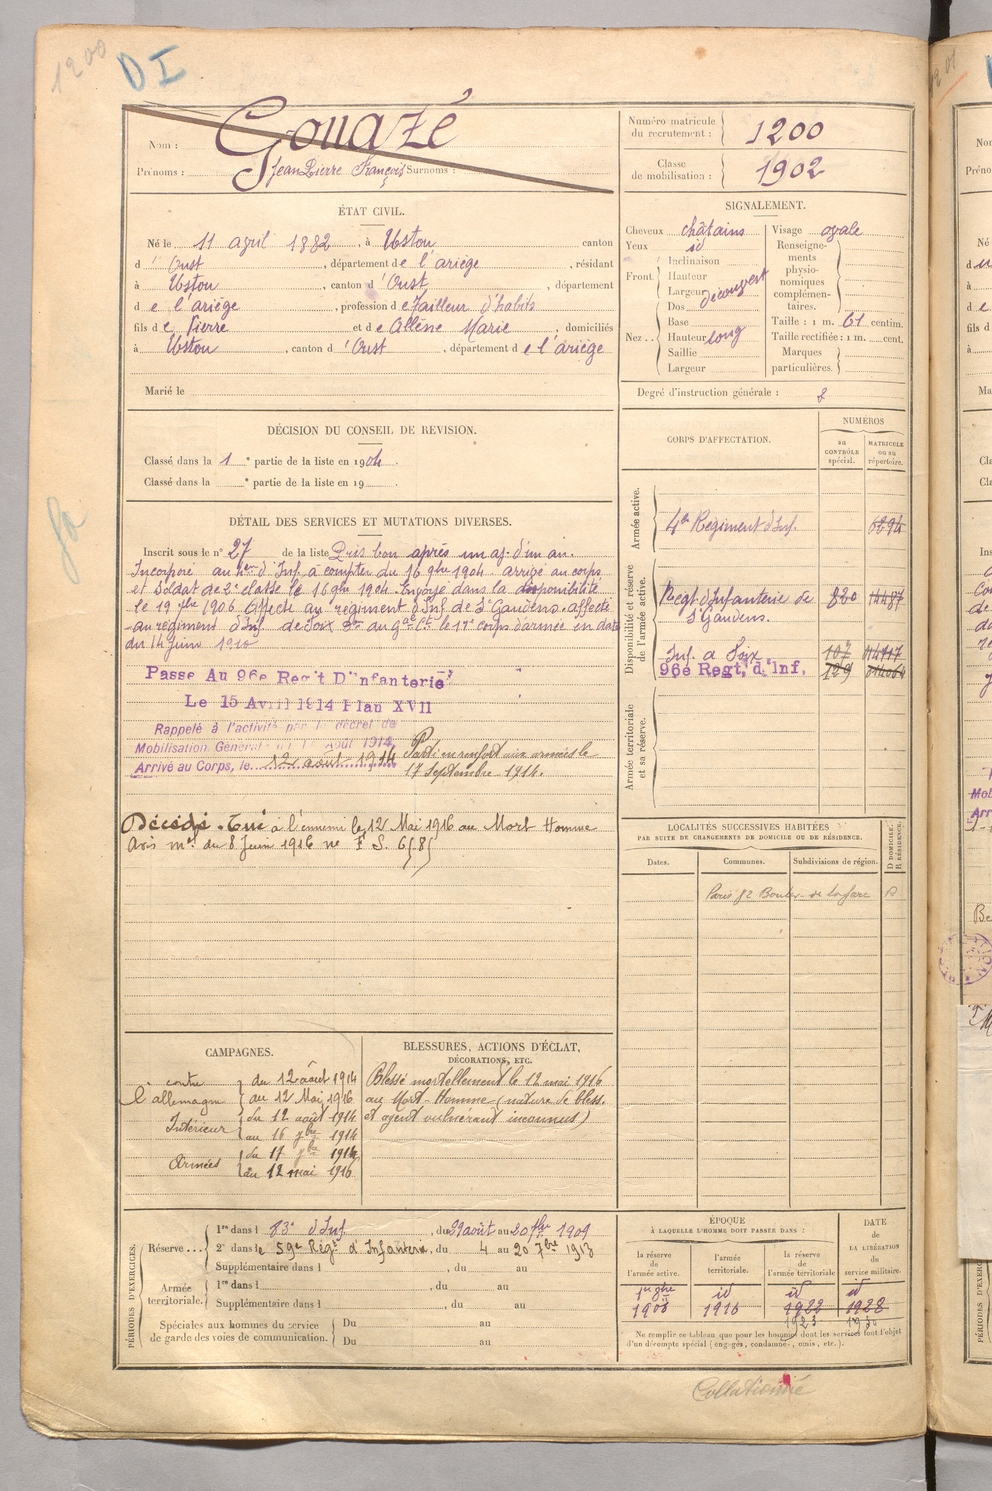 1200
DI
Nom : Gouazé
Prénoms : Jean Pierre François Surnoms :
Numéro matricule du recrutement : 1200
Classe de mobilisation : 1902
ÉTAT CIVIL.
Né le 11 avril 1882, à Ustou canton
d' Oust, département de l'ariège, résidant
à Ustou, canton d'Oust, département
de l'ariège, profession de tailleur d'habits
fils de Pierre et de Allène Marie, domiciliés
à Ustou, canton d'Oust, département de l'ariège
Marié le
SIGNALEMENT.
Cheveux châtains
Yeux id
Front Inclinaison
Hauteur
Largeur découvert
Nez Dos
Base
Hauteur long
Saillie
Largeur
Visage ovale
Renseignements physionomiques complémentaires.
Taille : 1 m. 61 centim.
Taille rectifiée : 1 m. cent.
Marques particulières.
Degré d'instruction générale : 2
DÉCISION DU CONSEIL DE REVISION.
Classé dans la 1e partie de la liste en 1904.
Classé dans la e partie de la liste en 19
DÉTAIL DES SERVICES ET MUTATIONS DIVERSES.
Inscrit sous le n° 27 de la liste Pris bon après un aj. d'un an.
Incorporé au 4e d'Inf. à compter du 16 9bre 1904 arrivé au corps
et soldat de 2e classe le 16 9bre 1904. Envoyé dans la disponibilité
le 19 7bre 1906. Affecté au régiment d'Inf de St Gaudens. affecté
au régiment d'Inf de Foix en date
du 14 juin 1910
Passe Au 96e Reg't D'Infanterie
Le 15 Avril 1914 Plan XVII
Rappelé à l'activité par le décret de
Mobilisation Générale du 1er Août 1914.
Arrivé au Corps, le 12 août 1914
Parti en renfort aux armées le
17 Septembre 1914.
Décédé. Tué à l'ennemi le 12 Mai 1916 au Mort Homme
Avis mel du 8 Juin 1916 ne F S. 6585
CORPS D'AFFECTATION.
NUMÉROS
au CONTRÔLE spécial.
MATRICULE ou au répertoire.
Armée active.
4e Régiment d'Inf. 6294
Disponibilité et réserve de l'armée active.
Regt d'Infanterie de St Gaudens. 820 14487
Inf. a Foix 107 014117
96e Regt, d'Inf. 129
Armée territoriale et sa réserve.
LOCALITÉS SUCCESSIVES HABITÉES
PAR SUITE DE CHANGEMENTS DE DOMICILE OU DE RÉSIDENCE.
Dates. Communes. Subdivisions de région. D DOMICILE. R RÉSIDENCE.
Paris 82 R
CAMPAGNES.
contre l'allemagne du 12 août 1914
au 12 Mai 1916
Intérieur du 12 août 1914
au 16 7bre 1914
Armées du 17 7bre 1914
au 12 mai 1916
BLESSURES, ACTIONS D'ÉCLAT,
DÉCORATIONS, ETC.
Blessé mortellement le 12 mai 1916
au Mort-Homme (nature de bless.
et agent vulnérant inconnus)
PÉRIODES D'EXERCICES.
Réserve...
1re dans l 83e d'Inf, du 29 août au 20 7bre 1909
2e dans le 59e Régt d'Infanterie, du 4 au 20 7bre 1913
Supplémentaire dans l , du au
Armée territoriale.
1re dans l , du au
Supplémentaire dans l , du au
Spéciales aux hommes du service de garde des voies de communication.
Du au
Du au
ÉPOQUE
À LAQUELLE L'HOMME DOIT PASSER DANS :
la réserve de l'armée active.
l'armée territoriale.
la réserve de l'armée territoriale
DATE de LA LIBÉRATION du service militaire.
1er 9bre 1908
id 1916
id 1922
id 1928
1923
Ne remplir ce tableau que pour les hommes dont les services font l'objet
d'un décompte spécial (engagés, condamnés, omis, etc.).
Collationné